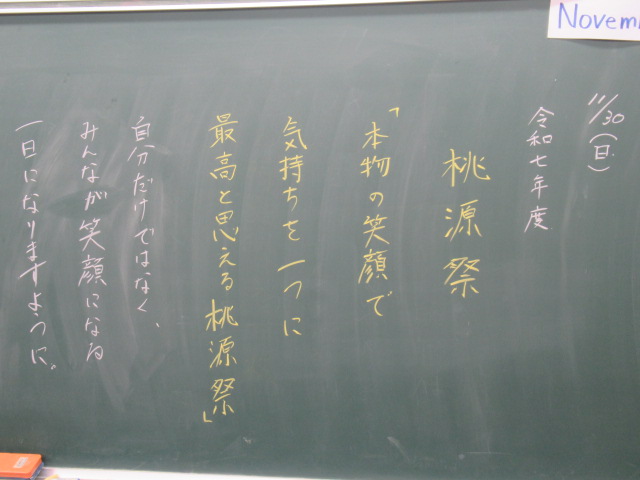 Novem
11/30(日)
令和七年度
桃源祭
「本物の笑顔で
気持ちを一つに
最高と思える桃源祭」
自分だけではなく、
みんなが笑顔になる
一日になりますように。